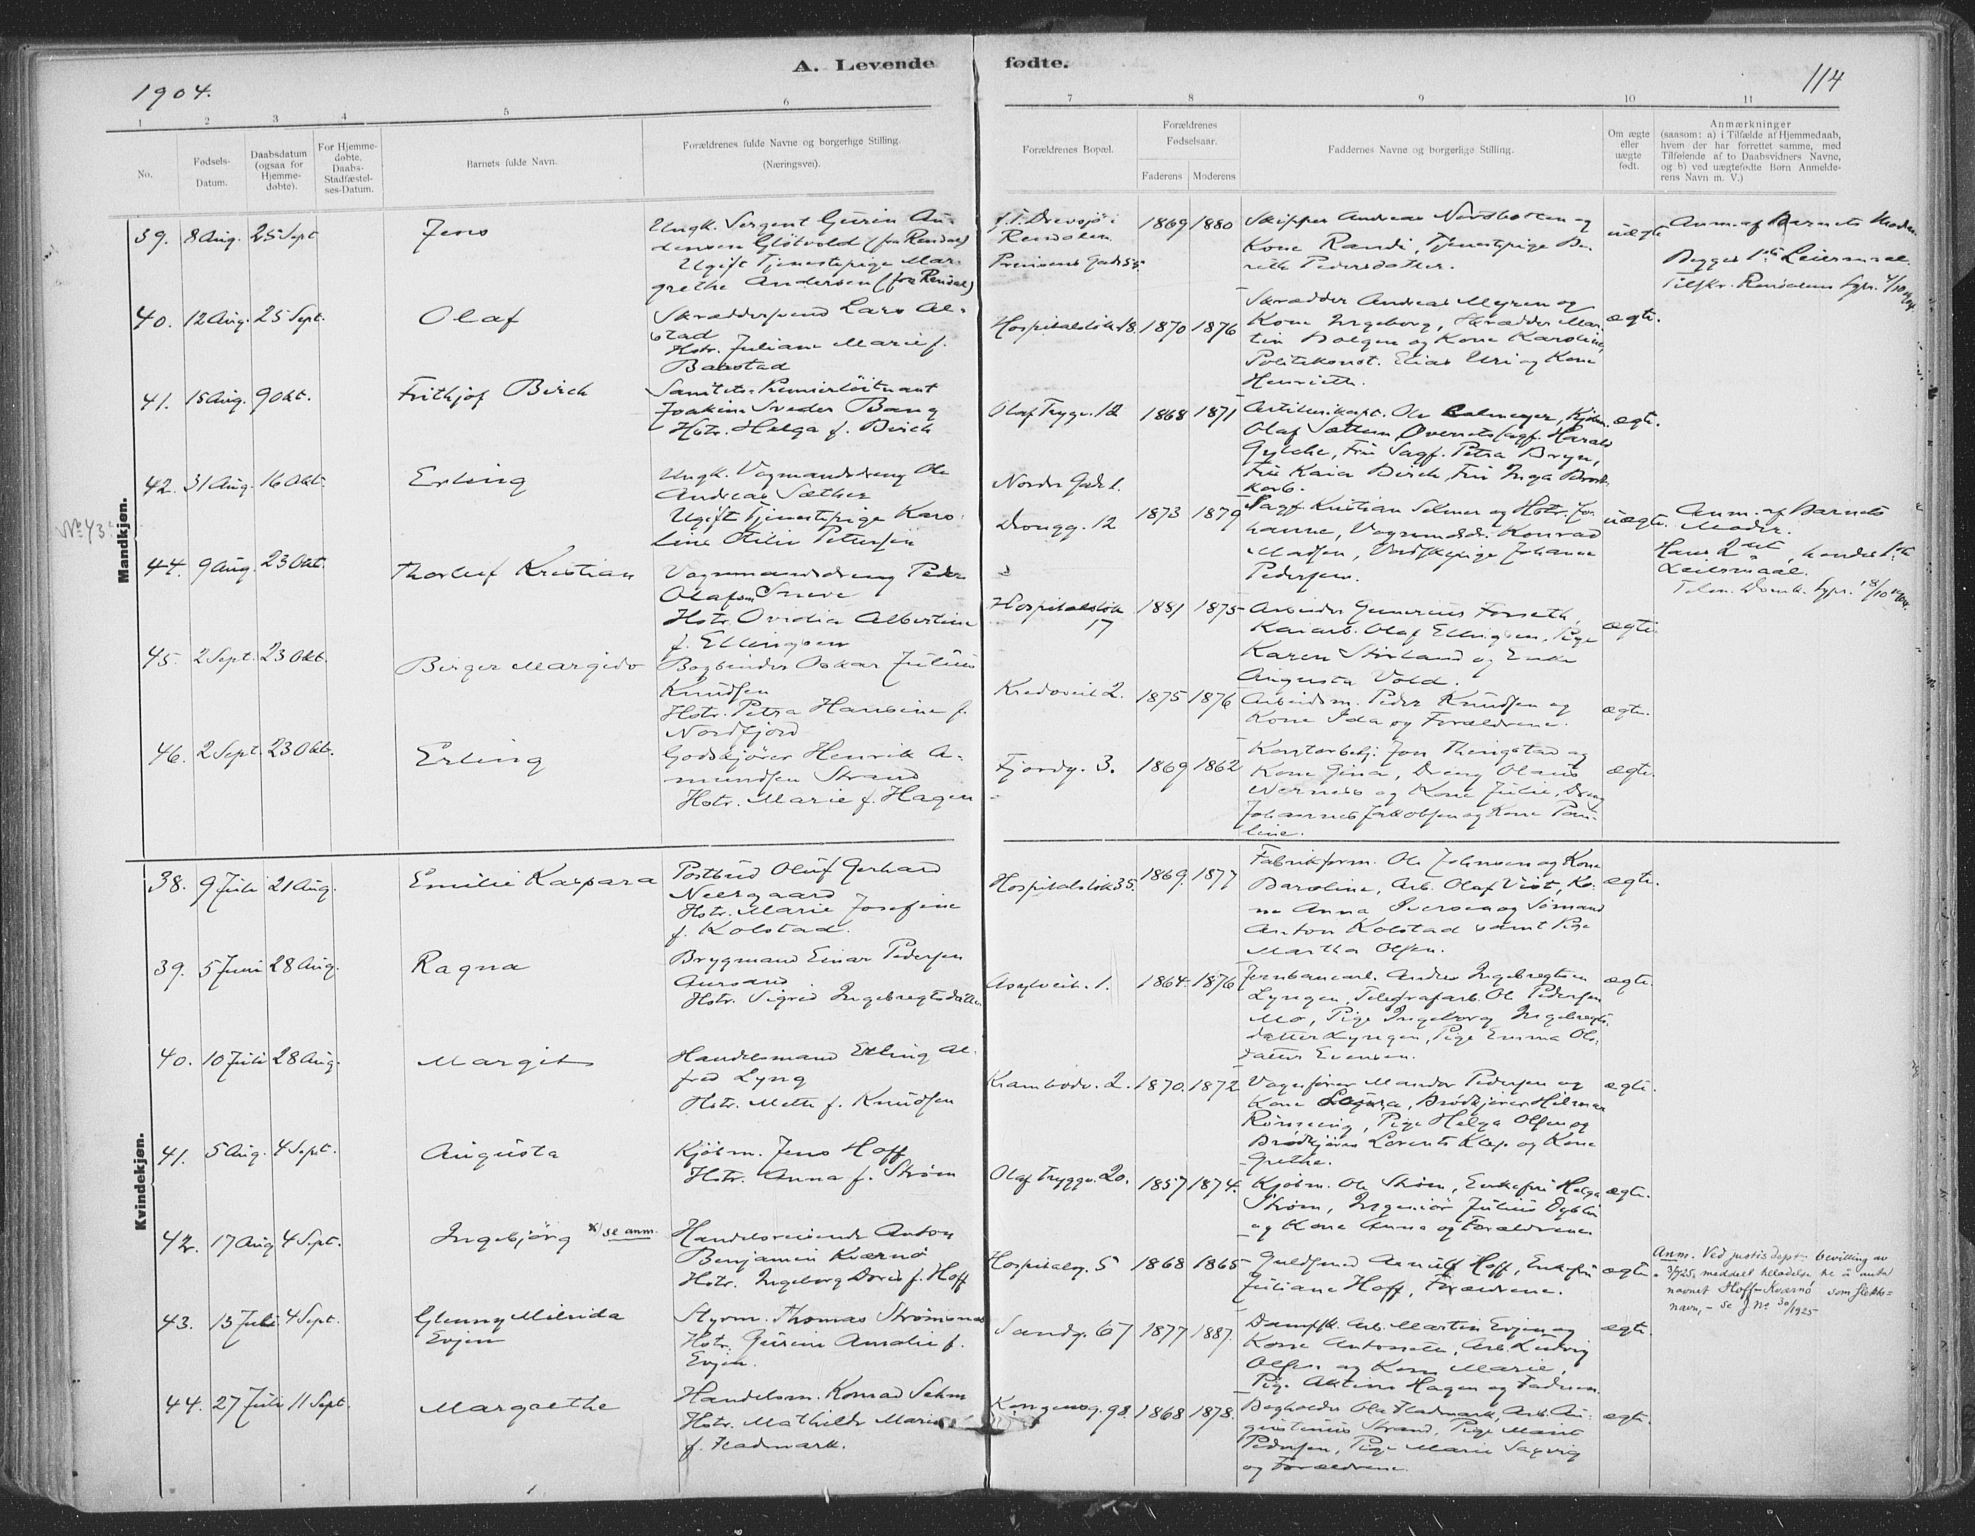 1904.
A. Levende fødte.
114
1 2 3 4 5 6 7 8 9 10 11
No.
Fødsels-Datum.
Daabsdatum (ogsaa for Hjemmedøbte).
For Hjemmedøbte, Daabs-Stadfæstelses-Datum.
Barnets fulde Navn.
Forældrenes fulde Navne og borgerlige Stilling. (Næringsvei).
Forældrenes Bopæl.
Forældrenes Fødselsaar.
Faderens Moderens
Faddernes Navne og borgerlige Stilling.
Om ægte eller uægte født.
Anmærkninger
(saasom: a) i Tilfælde af Hjemmedaab,
hvem der har forrettet samme, med
Tilføiende af to Daabsvidners Navne,
og b) ved uægtefødte Børn Anmelde-
rens Navn m. V.)
Mandkjøn.
39. 8 Aug. 25 Sept Jens
Ungk. Sergent Gurin Au-
densen Gløtvold (fra Rendal)
Ugift Tjenestepige Mar-
grethe Andersen (fra Rendal)
Drevsjø i
Rendalen
Prinsens Gade 55
1869 1880
Skipper Andreas Nordbotten og
Kone Randi, Tjenestepige Be-
rith Pedersdatter.
uægte
Anm. af Barnets Moder.
Begges 1ste Leiermaal.
Tilskr. Rendalens Sgpr. 4/10 1904
40. 12 Aug. 25 Sept. Olaf
Skræddersvend Lars Al-
stad
Hstr. Juliane Marie f.
Baastad
Hospitalsløk. 18. 1870 1876
Skrædder Andreas Myren og
Kone Ingeborg, Skrædder Mar-
tin Dolgen og Kone Karoline,
Politikonst. Elias Uri og Kone
Henriette.
ægte.
41. 15 Aug. 9 Okt. Frithjof Birch
Sanitets-Premierløitnant
Joakim Sveder Bang
Hstr. Helga f. Birch
Olaf Trygv. 12 1868 1871
Artillerikapt. Ole
Olaf Sættem Øverets sagf. Harald
Gylche, Fru Sagf. Petra Bryn,
Fru Kaia Birch, Fru Inga Brock-
korb.
ægte.
42. 31 Aug. 16 Okt. Erling
Ungk. Vognmandsdreng Ole
Andreas Sæther
Ugift Tjenestepige Karo-
line Otilie Pettersen
Nordre Gade 1.
Dronngg. 12
1873 1879
Sagf. Kristian Selmer og Hstr. Jo-
hanne, Vognmdsdr. Konrad
Madsen, Pige Johanna
Pedersen.
uægte.
Anm. af Barnets
Moder.
Hans 2det, hendes 1ste
Leiermaal.
Tilm. Domk. Sgpr. 18/10 1904.
No 43
44. 9 Aug. 23 Okt. Thorleif Kristian
Vognmandsdreng Peder
Olafsen Sneve
Hstr. Ovidia Albertine
f. Ellingsen
Hospitalsløk.
17
1881 1875
Arbeider Gunerius Forseth,
Kaiarb. Olaf Ellingsen, Pige
Karen Stirland og Enke
Augusta Vold.
ægte.
45. 2 Sept. 23 Okt. Birger Margido
Bogbinder Oskar Julius
Knudsen
Hstr. Petra Hansine f.
Nordfjord
Kredsveit 2. 1875 1876
Arbeidsm. Peder Knudsen og
Kone Ida og Forældrene.
ægte.
46. 2 Sept. 23 Okt. Erling
Godskjører Henrik A-
mundsen Strand
Hstr. Marie f. Hagen
Fjordg. 3. 1869 1862
Kontorbetj. Jon Thingstad og
Kone Gina, Dreng Olaus
Werness og Kone Julie, Dreng
Johannes Jakobsen og Kone Pau-
line.
ægte.
Kvindekjøn.
38. 9 Juli 21 Aug. Emilie Kaspara
Postbud Oluf Gerhard
Neergaard
Hstr. Marie Josefine
f. Kolstad.
Hospitalsløk 35. 1869. 1877
Fabrikform. Ole Johnsen og Kone
Baroline, Arb. Olaf Vist, Ko-
ne Anna Iversen og Sømand
Anton Kolstad samt Pige
Martha Olsen.
ægte.
39. 5 Juni 28 Aug. Ragna
Brygmand Einar Pedersen
Aursand
Hstr. Sigrid Ingebregtsdatter
Asylveit. 1. 1864 1876
Jernbanearb. Andres Ingebregtsen
Lyngen, Telegrafarb. Ole Pedersen
Mo, Pige Ingeborg Ingebregts-
datter Lyngen, Pige Emma Ols-
datter Evensen.
ægte.
40. 10 Juli 28 Aug. Margit
Handelsmand Erling Al-
fred Lyng
Hstr. Mette f. Knudsen
Krambodv. 2. 1870. 1872
Vognfører Mandor Pedersen og
Kone Laura, Brødkjører Hilmar
Rønning, Pige Helga Olsen og
Brødkjører Lorents Klep og Kone
Grethe.
ægte.
41. 5 Aug. 4 Sept. Augusta
Kjøbm. Jens Hoff
Hstr. Anna f. Strøm
Olaf Tryggv. 20. 1857 1874.
Kjøbm. Ole Strøm, Enkefru Helga
Strøm, Ingeniør Julius Dyblin
og Kone Anna og Forældrene
ægte.
42. 17 Aug 4 Sept. Ingebjørg x) se anm.
Handelsreisende Anton
Benjamin Kværnø
Hstr. Ingeborg Dores f. Hoff
Hospitalsg. 5 1868 1865
Guldsmed Arnulf Hoff, Enkefru
Juliane Hoff, Forældrene.
ægte.
Anm. Ved justisdept bevilling av
3/4 25, meddelt tilladelse til å anta
navnet Hoff-Kværnø som slekts-
navn, - se J No 30/1925
43. 13 Juli 4 Sept. Glenny Milnida
Evjen
Styrm. Thomas Strømsnes
Hstr. Gusine Amalie f.
Evjen.
Sandg. 67 1877 1887.
Dampsk. Arb. Martin Evjen og
Kone Antonette, Arb. Ludvig
Olsen og Kone Marie,
Pige Aktine Hagen og Faderen.
ægte.
44. 27 Juli 11 Sept. Margrethe
Handelsm. Konrad Sehm
Hstr. Mathilde Marie
f. Fladmark.
Kongensg. 98. 1868 1878.
Bogholder Ola Fladmark, Arb. Au-
gustinius Strand, Pige Marit
Pedersen, Pige Marie Sagvig
og Forældrene.
ægte.